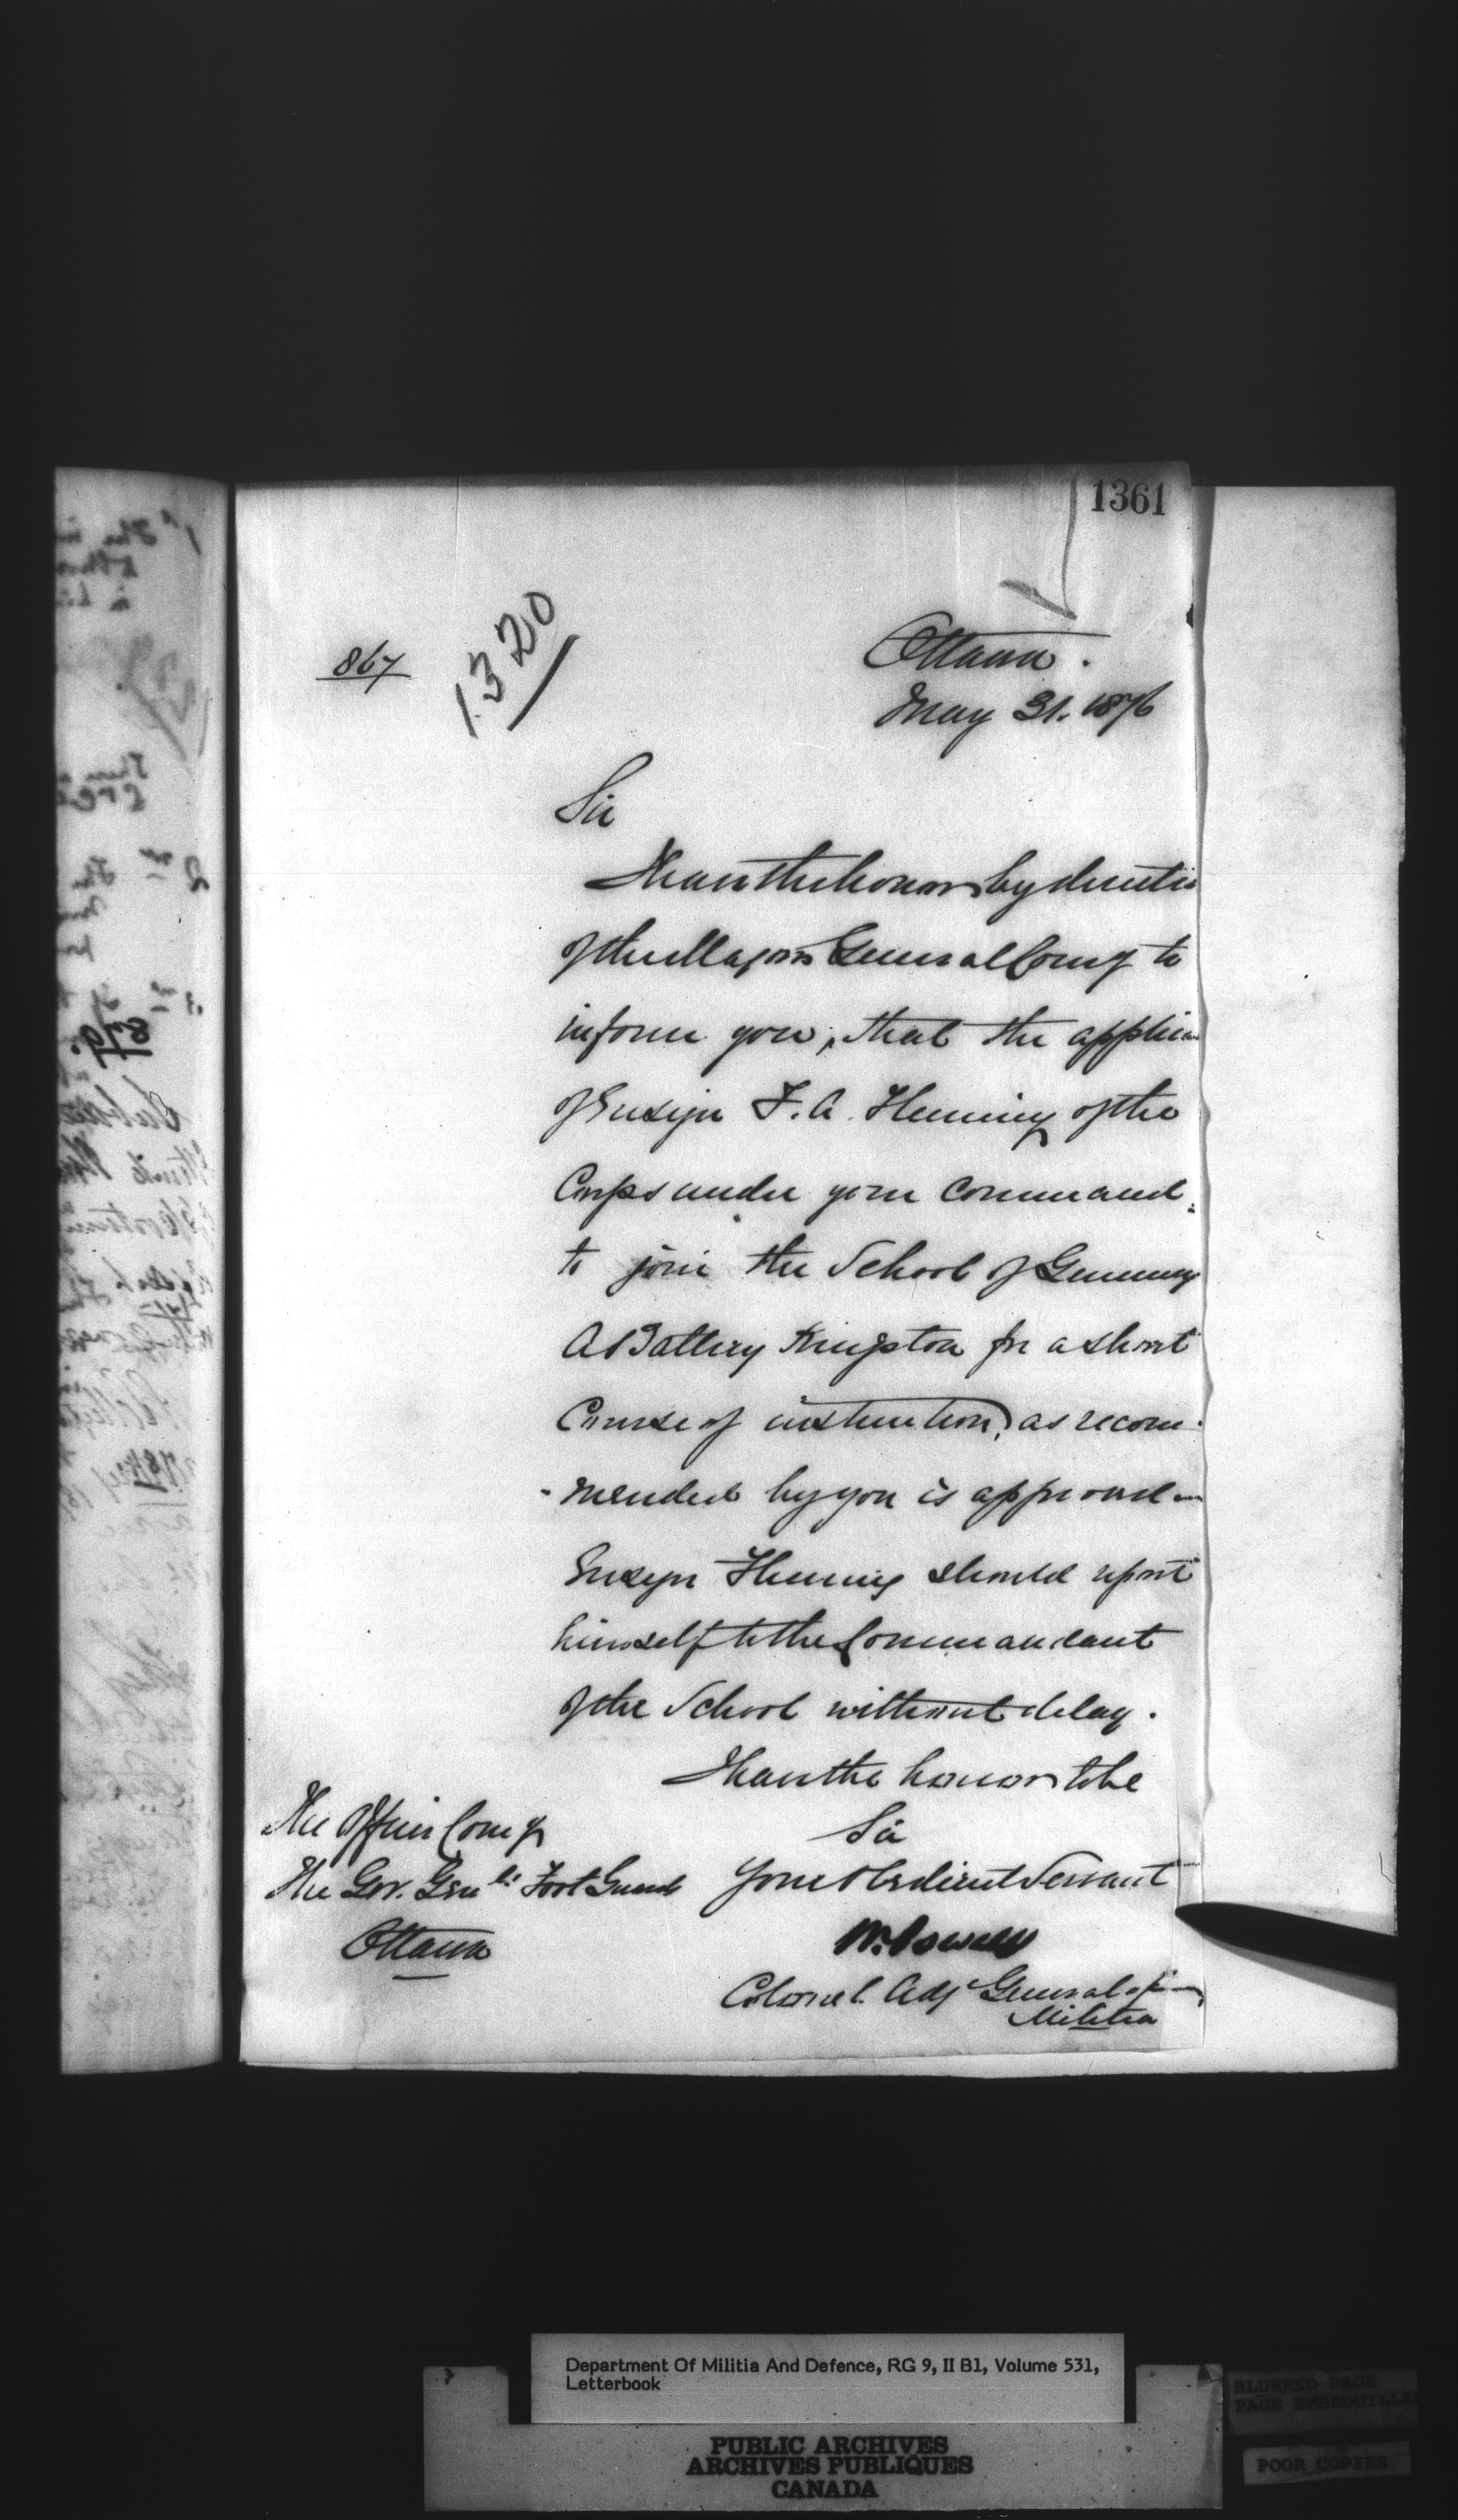 1361
867
1320
Ottawa.
May 31. 1876
Sir
I have the honor by directio
of the Major General Comg to
inform you, that the applica
of Ensign F. A. Fleming of the
Corps under your Command,
to join the School of Gunnery
A Battery Kingston for a short
Course of instruction, as recom-
-mended by you is approved—
Ensign Fleming should report
himself to the Commandant
of the School without delay.
I have the honor to be
Sir
Your Obedient Servant
W. Powell
Colonel. Adjt General of
Militia
The Officer Comg
The Gov. Genl's Foot Guards
Ottawa
Department Of Militia And Defence, RG 9, II B1, Volume 531,
Letterbook
PUBLIC ARCHIVES
ARCHIVES PUBLIQUES
CANADA
BLURRED PAGE
PAGE EMBROUILLE
POOR COPIES